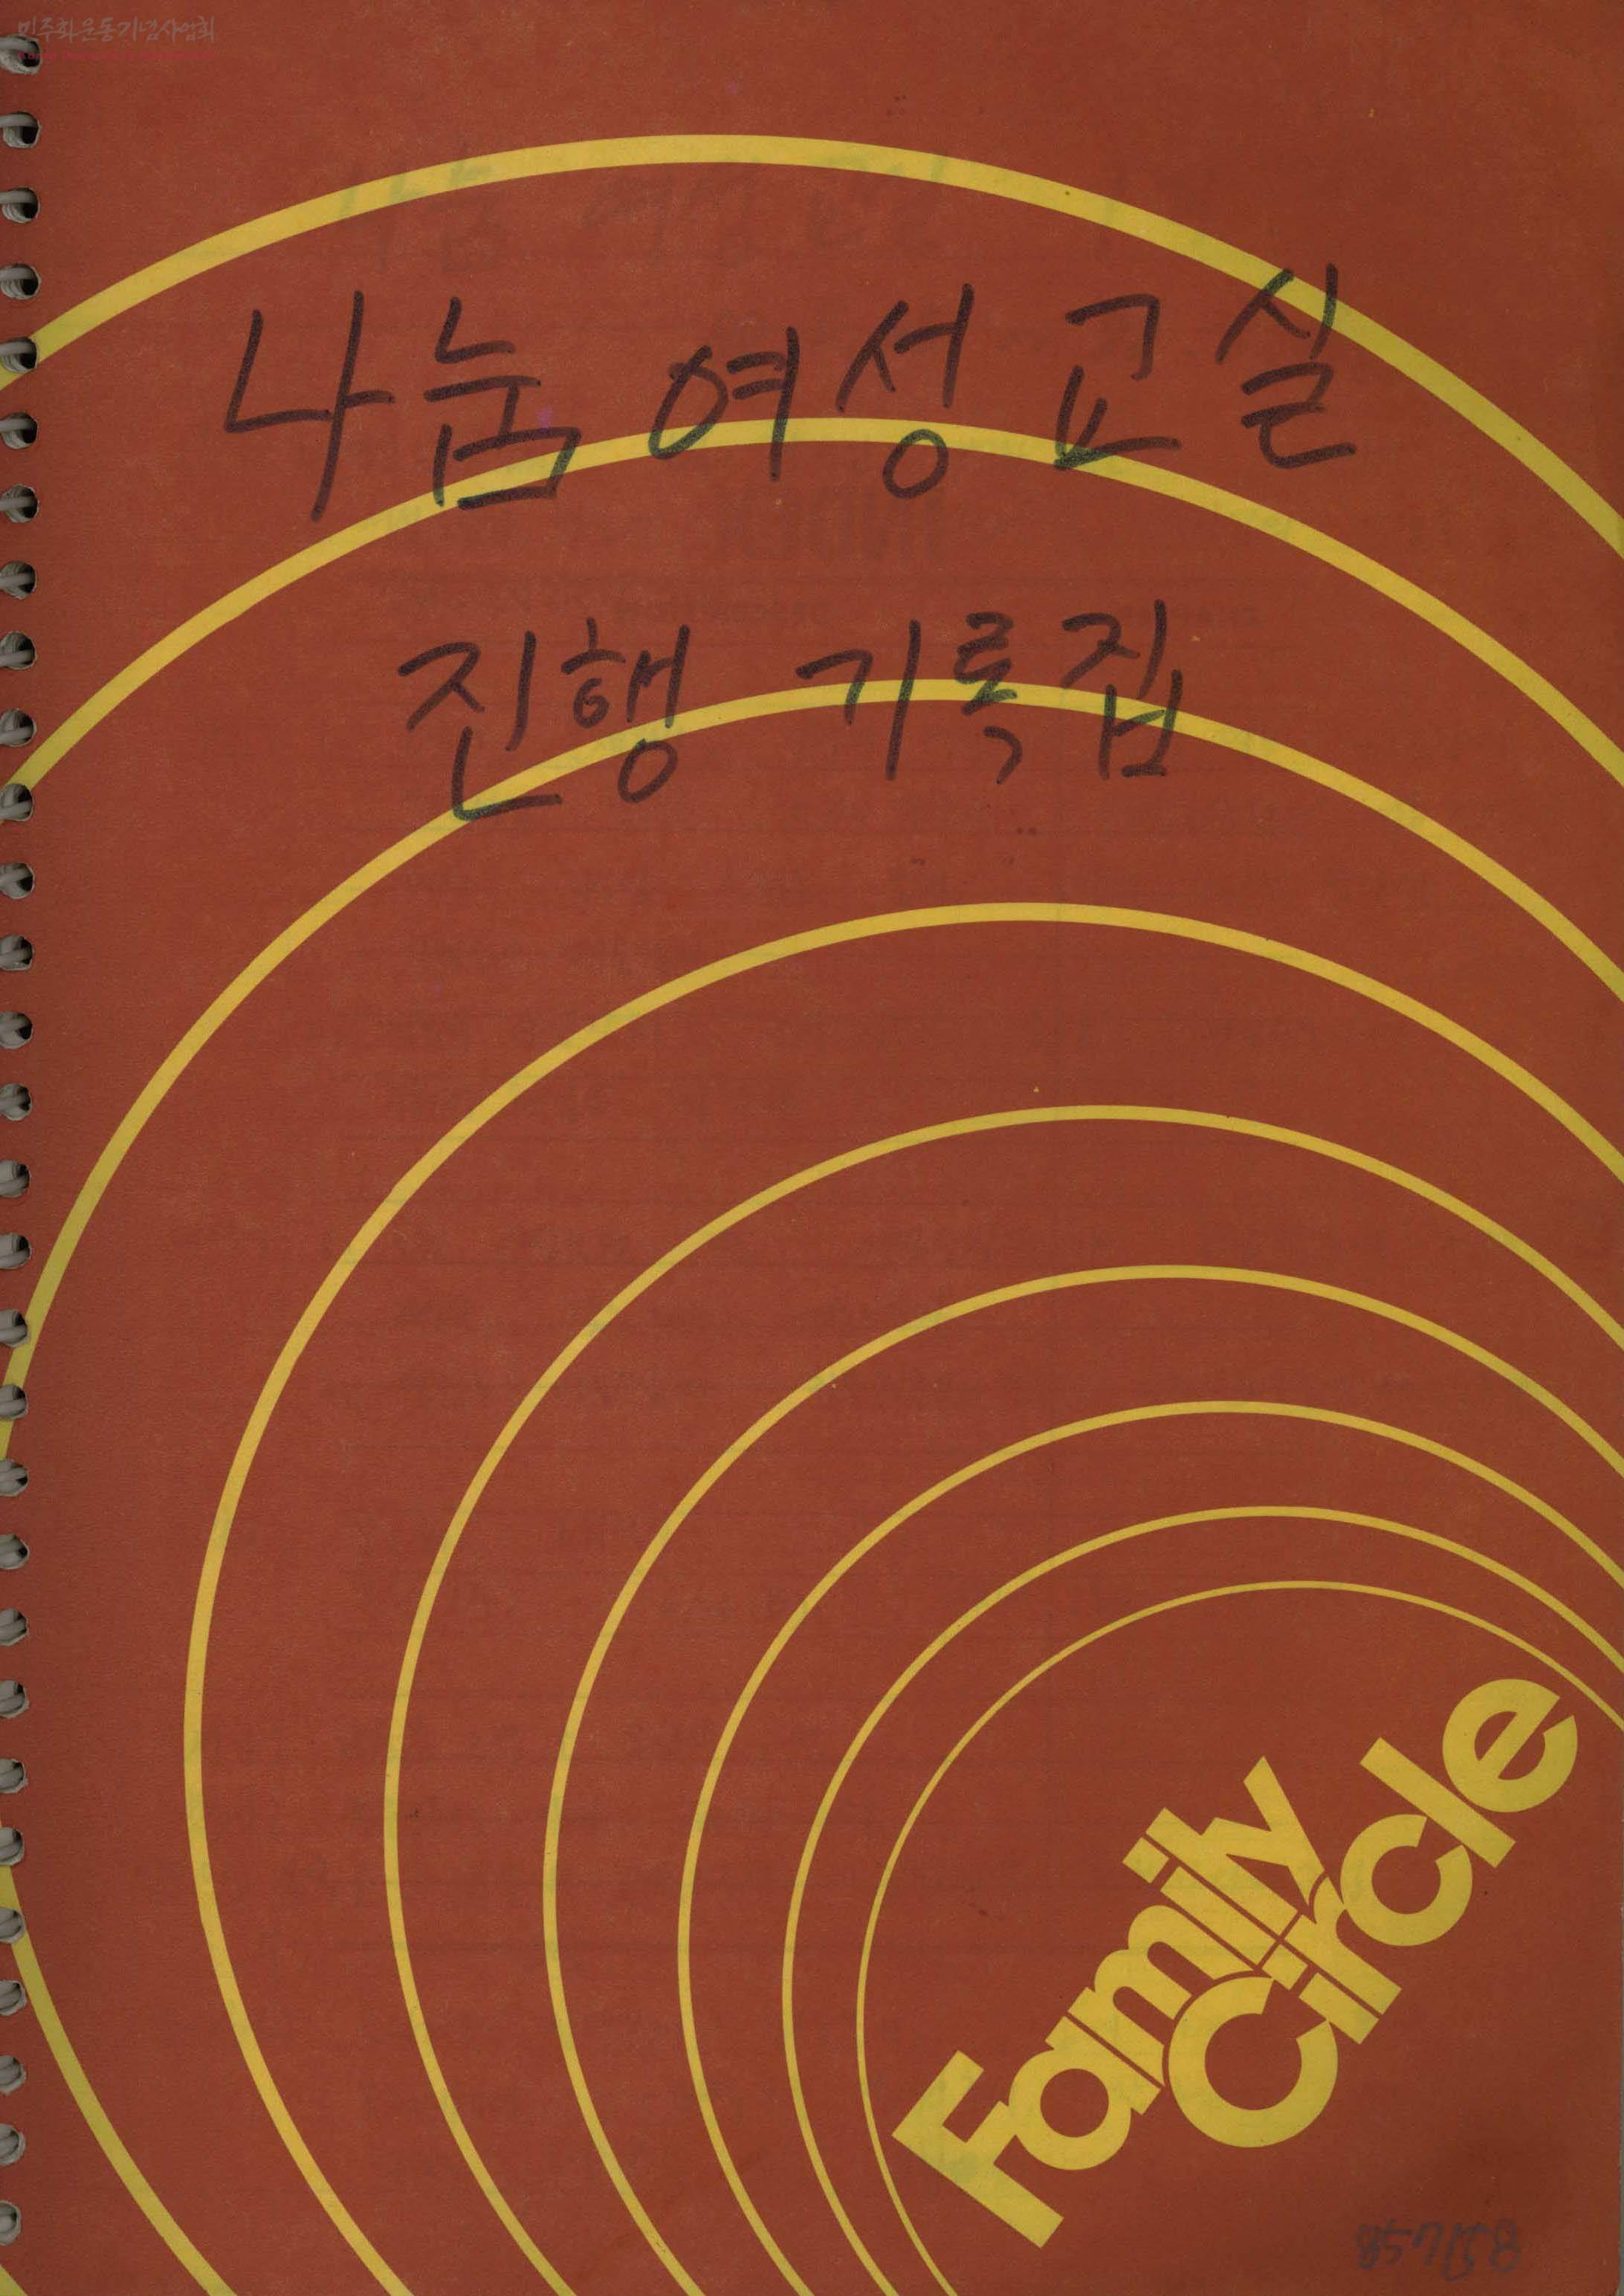 민주화운동기념사업회
나눔 여성 교실
진행 기록집
Family
Circle
857158